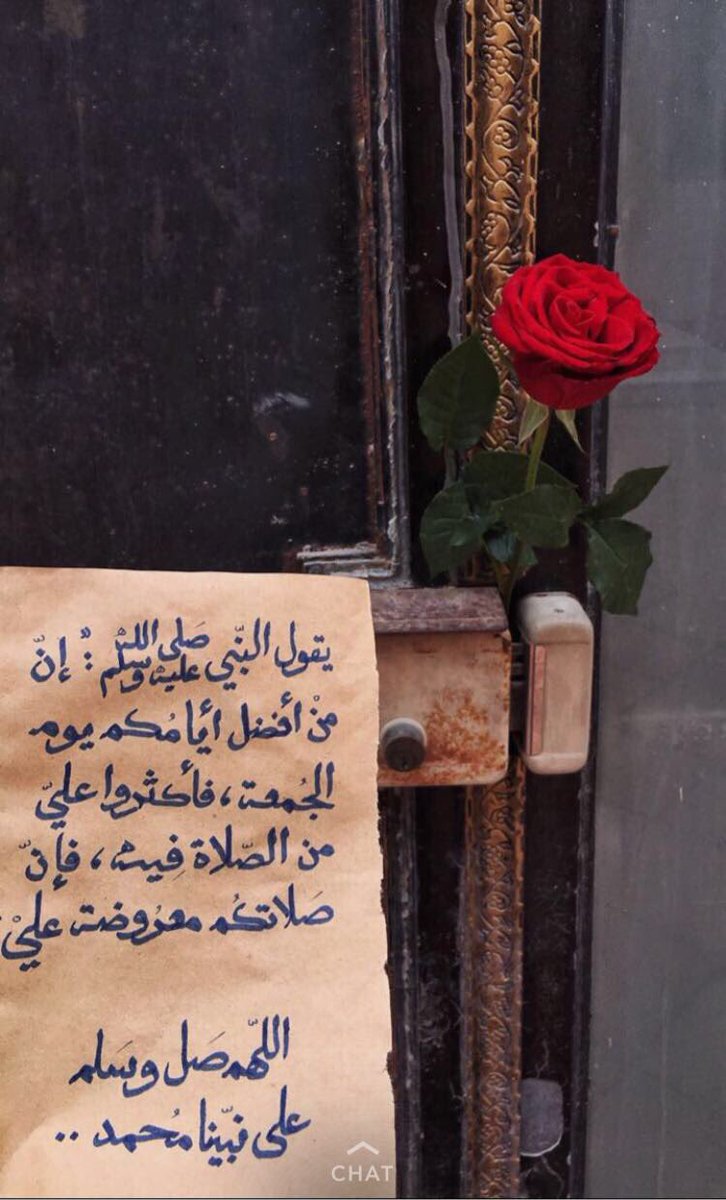 يقول النّبي صَلى الله عليه وسلم : " إنّ
منْ أفضل أيّامُكم يوم
الجُمعة ، فأكثروا عليّ
من الصّلاة فِيه ، فإنّ
صَلاتكُم معرُوضة عليْ
اللّهم صَل وسَلم
على نبيّنا مُحمد ..
CHAT